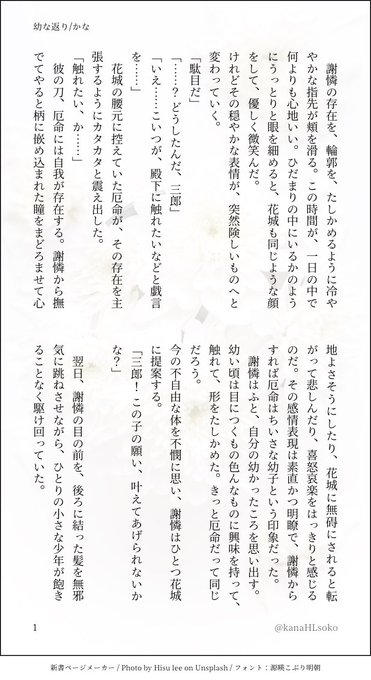 幼な返り/かな
　謝憐の存在を、輪郭を、たしかめるように冷や
やかな指先が頬を滑る。この時間が、一日の中で
何よりも心地いい。ひだまりの中にいるかのよう
にうっとりと眼を細めると、花城も同じような顔
をして、優しく微笑んだ。
けれどその穏やかな表情が、突然険しいものへと
変わっていく。
「駄目だ」
「……？どうしたんだ、三郎」
「いえ……こいつが、殿下に触れたいなどと戯言
を……」
　花城の腰元に控えていた厄命が、その存在を主
張するようにカタカタと震え出した。
「触れたい、か……」
　彼の刀、厄命には自我が存在する。謝憐から撫
でてやると柄に嵌め込まれた瞳をまどろませて心
地よさそうにしたり、花城に無碍にされると転
がって悲しんだり、喜怒哀楽をはっきりと感じる
のだ。その感情表現は素直かつ明瞭で、謝憐から
すれば厄命はちいさな幼子という印象だった。
　謝憐はふと、自分の幼かったころを思い出す。
幼い頃は目につくもの色んなものに興味を持って、
触れて、形をたしかめた。きっと厄命だって同じ
だろう。
今の不自由な体を不憫に思い、謝憐はひとつ花城
に提案する。
「三郎！この子の願い、叶えてあげられないか
な？」
　翌日、謝憐の目の前を、後ろに結った髪を無邪
気に跳ねさせながら、ひとりの小さな少年が飽き
ることなく駆け回っていた。
1
@kanaHLsoko
新書ページメーカー / Photo by Hisu lee on Unsplash / フォント：源暎こぶり明朝